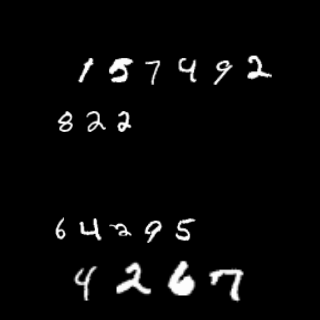 157492
822
64295
4267